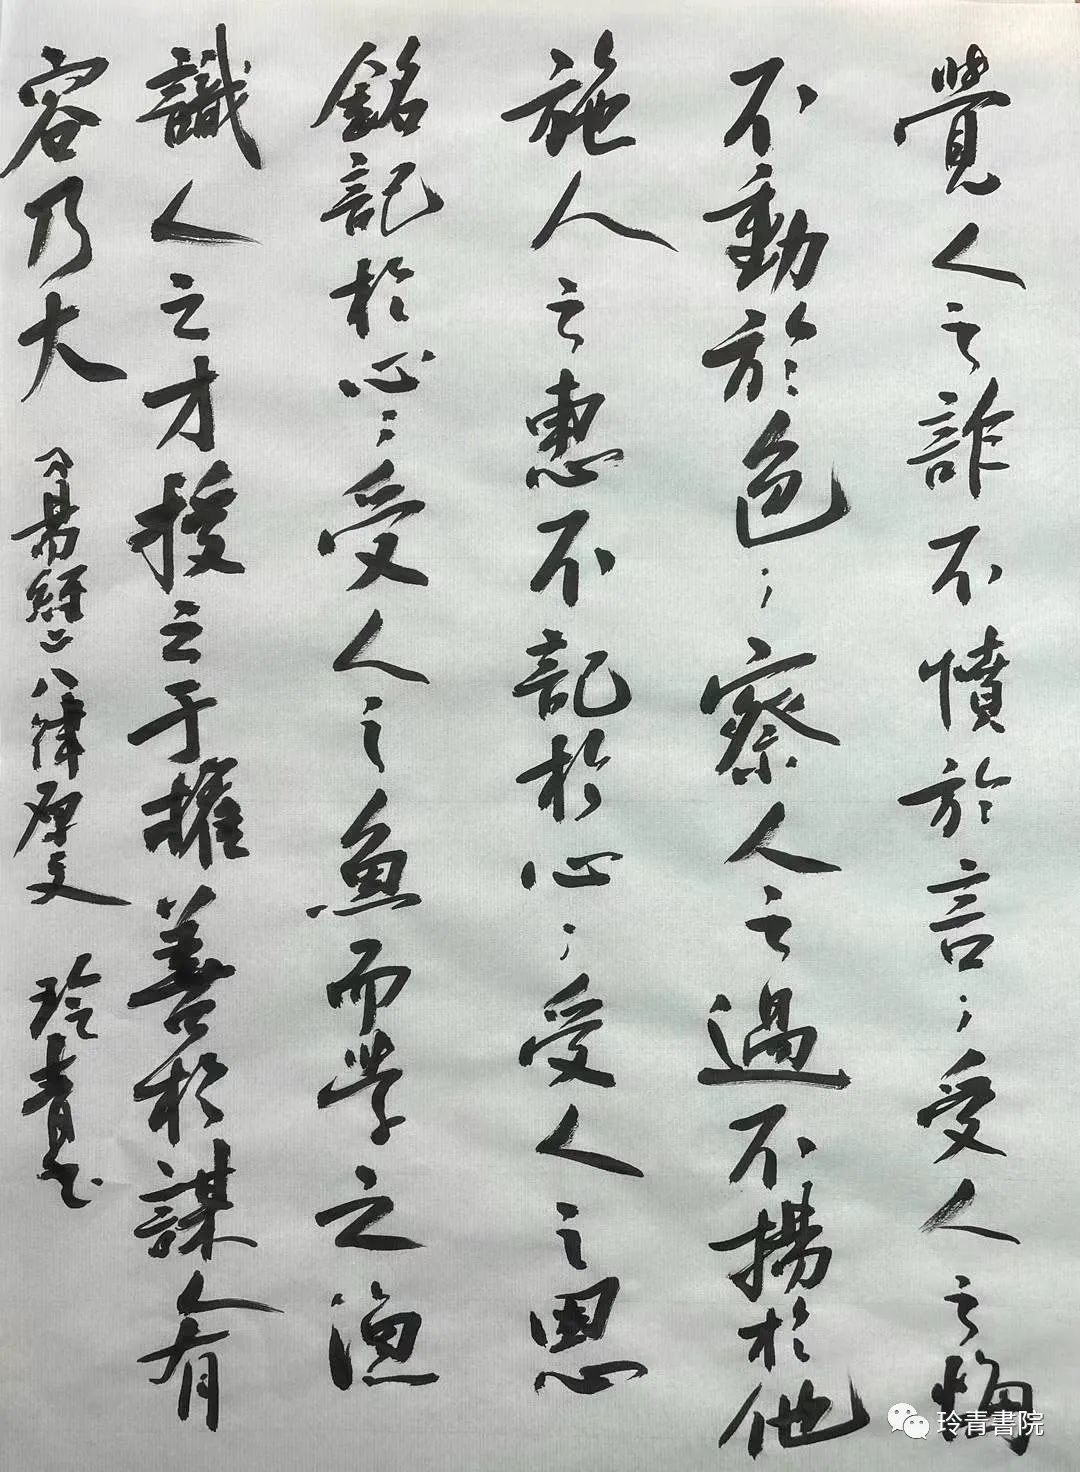 覺人之詐不憤於言；受人之悔
不動於色；察人之過不揚於他
施人之惠不記於心；受人之恩
銘記於心；受人之魚而學之漁
識人之才授之于權善於謀人有
容乃大
《易經》八律原文 玲青书
玲青書院